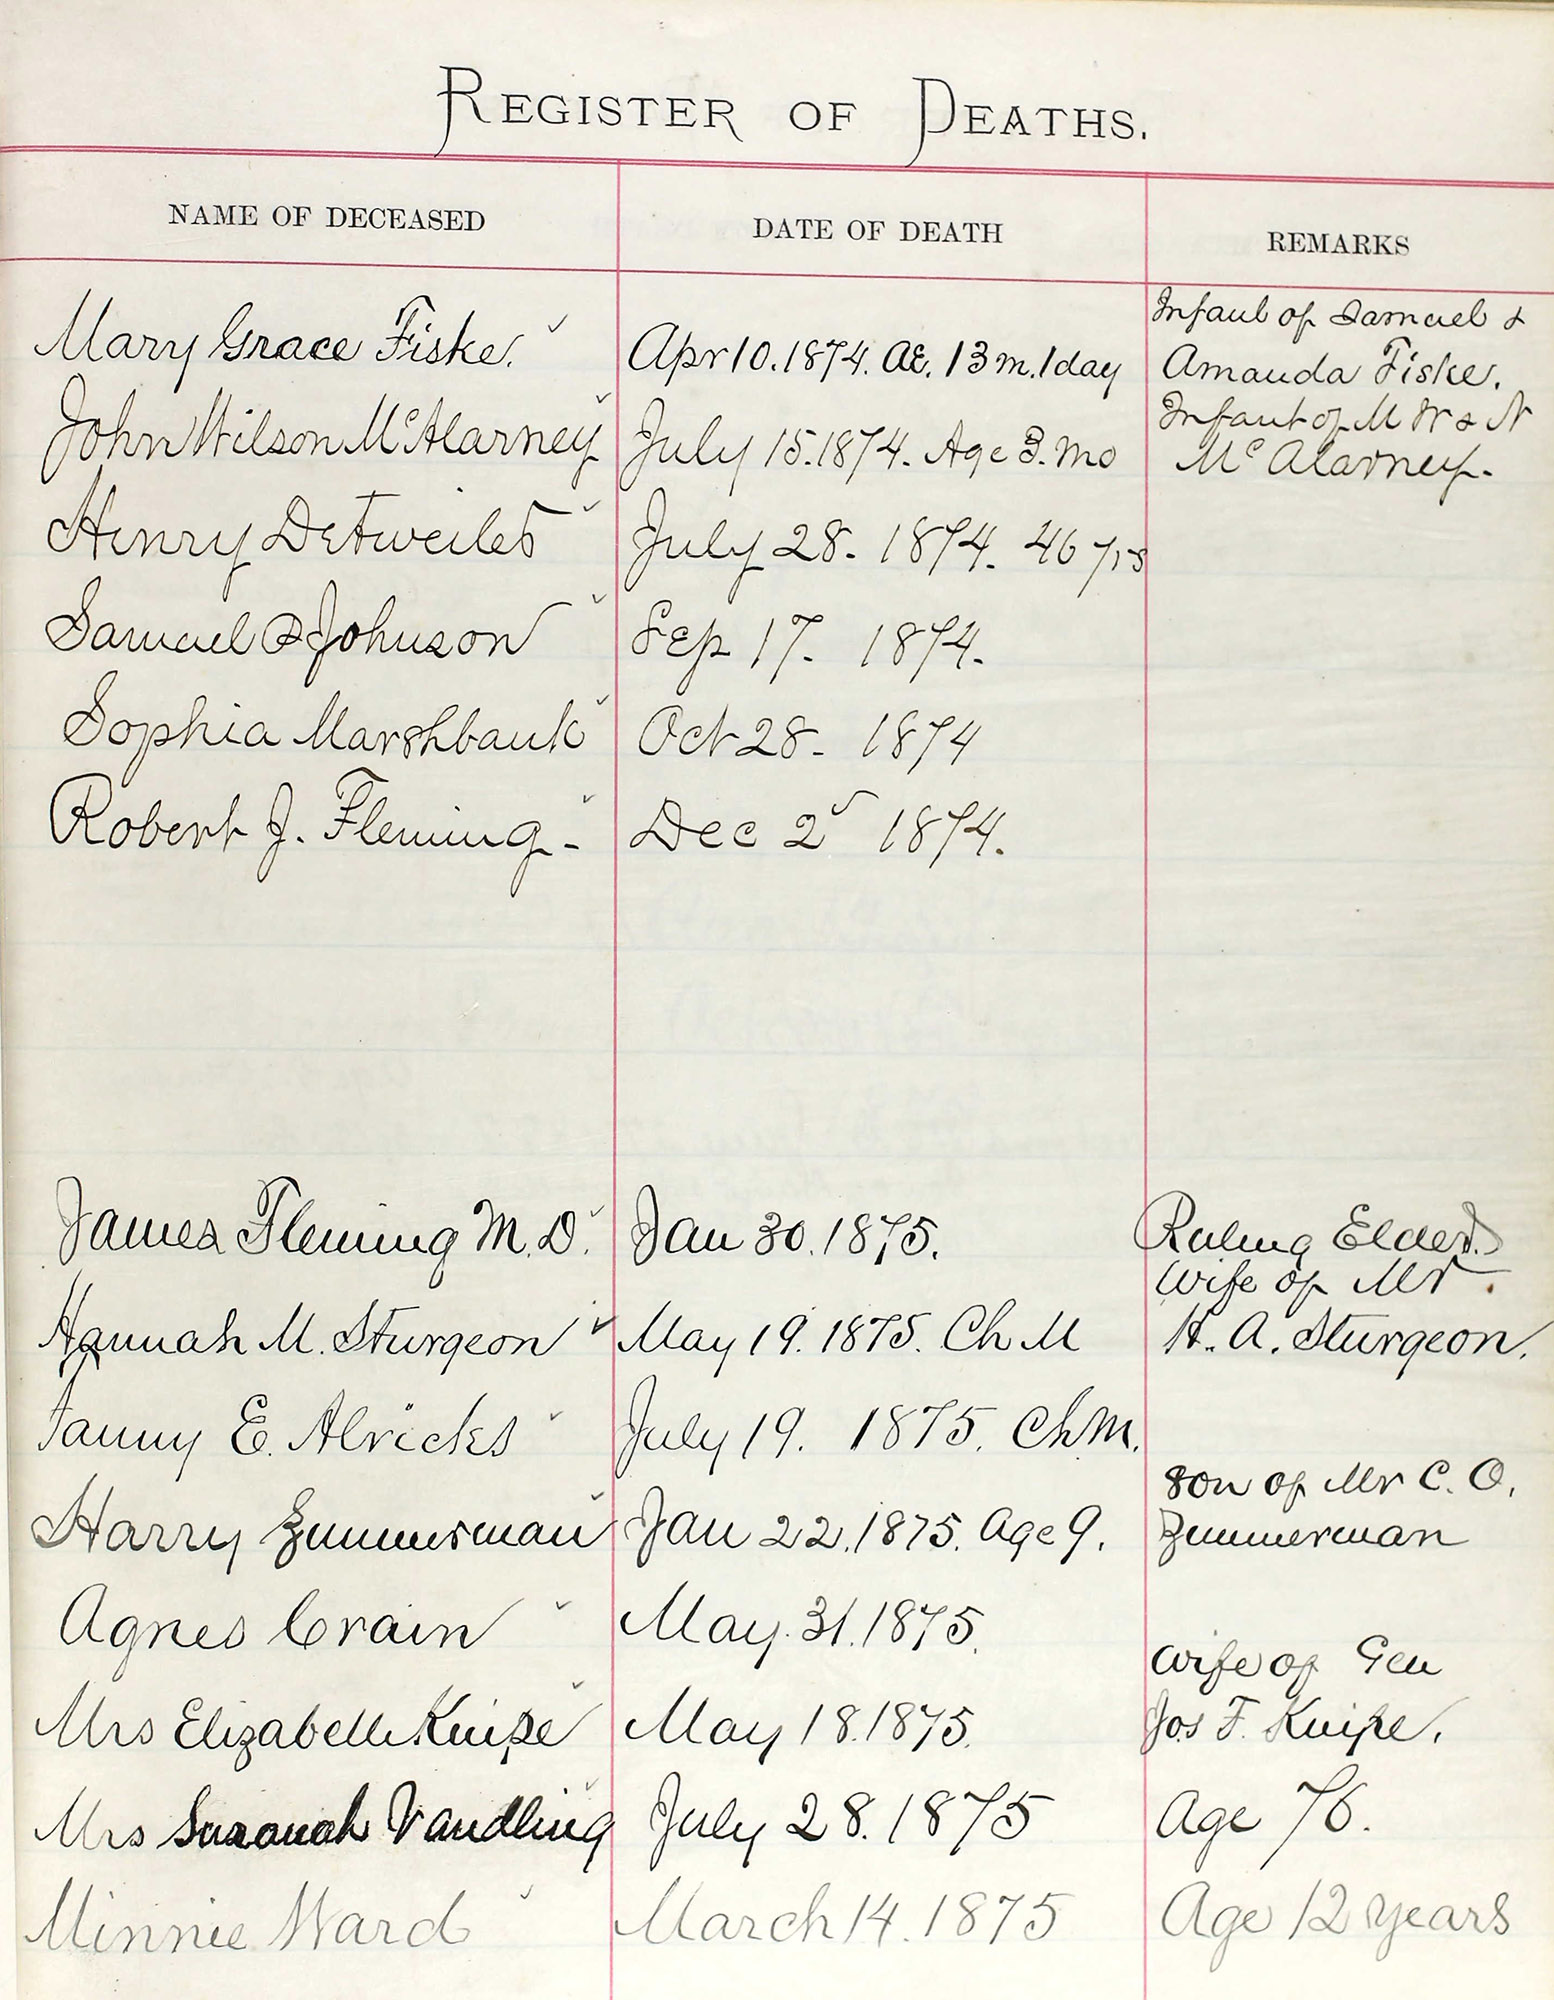 REGISTER OF DEATHS.
NAME OF DECEASED DATE OF DEATH REMARKS
Infant of Samuel &
Mary Grace Fiske. Apr 10. 1874. AE. 13 m. 1 day Amanda Fiske.
Infant of M W & N
John Wilson McAlarney July 15. 1874. Age 3. mo McAlarney.
Henry Detweiler July 28. 1874. 46 yrs
Samuel D Johnson Sep 17. 1874.
Sophia Marshbank Oct 28. 1874
Robert J. Fleming. Dec 2 1874.
James Fleming M.D. Jan 30. 1875. Ruling Elder.
Wife of Mr.
Hannah M. Sturgeon May 19. 1875. Ch M H. A. Sturgeon.
Fanny E. Alricks July 19. 1875. Ch M.
Son of Mr C. O.
Harry Zimmerman Jan 22. 1875. Age 9. Zimmerman
Agnes Crain May. 31. 1875.
Wife of Gen
Mrs Elizabeth Knipe May 18. 1875. Jos F. Knipe.
Mrs Susanah Vandling July 28. 1875 Age 76.
Minnie Ward March 14. 1875 Age 12 years